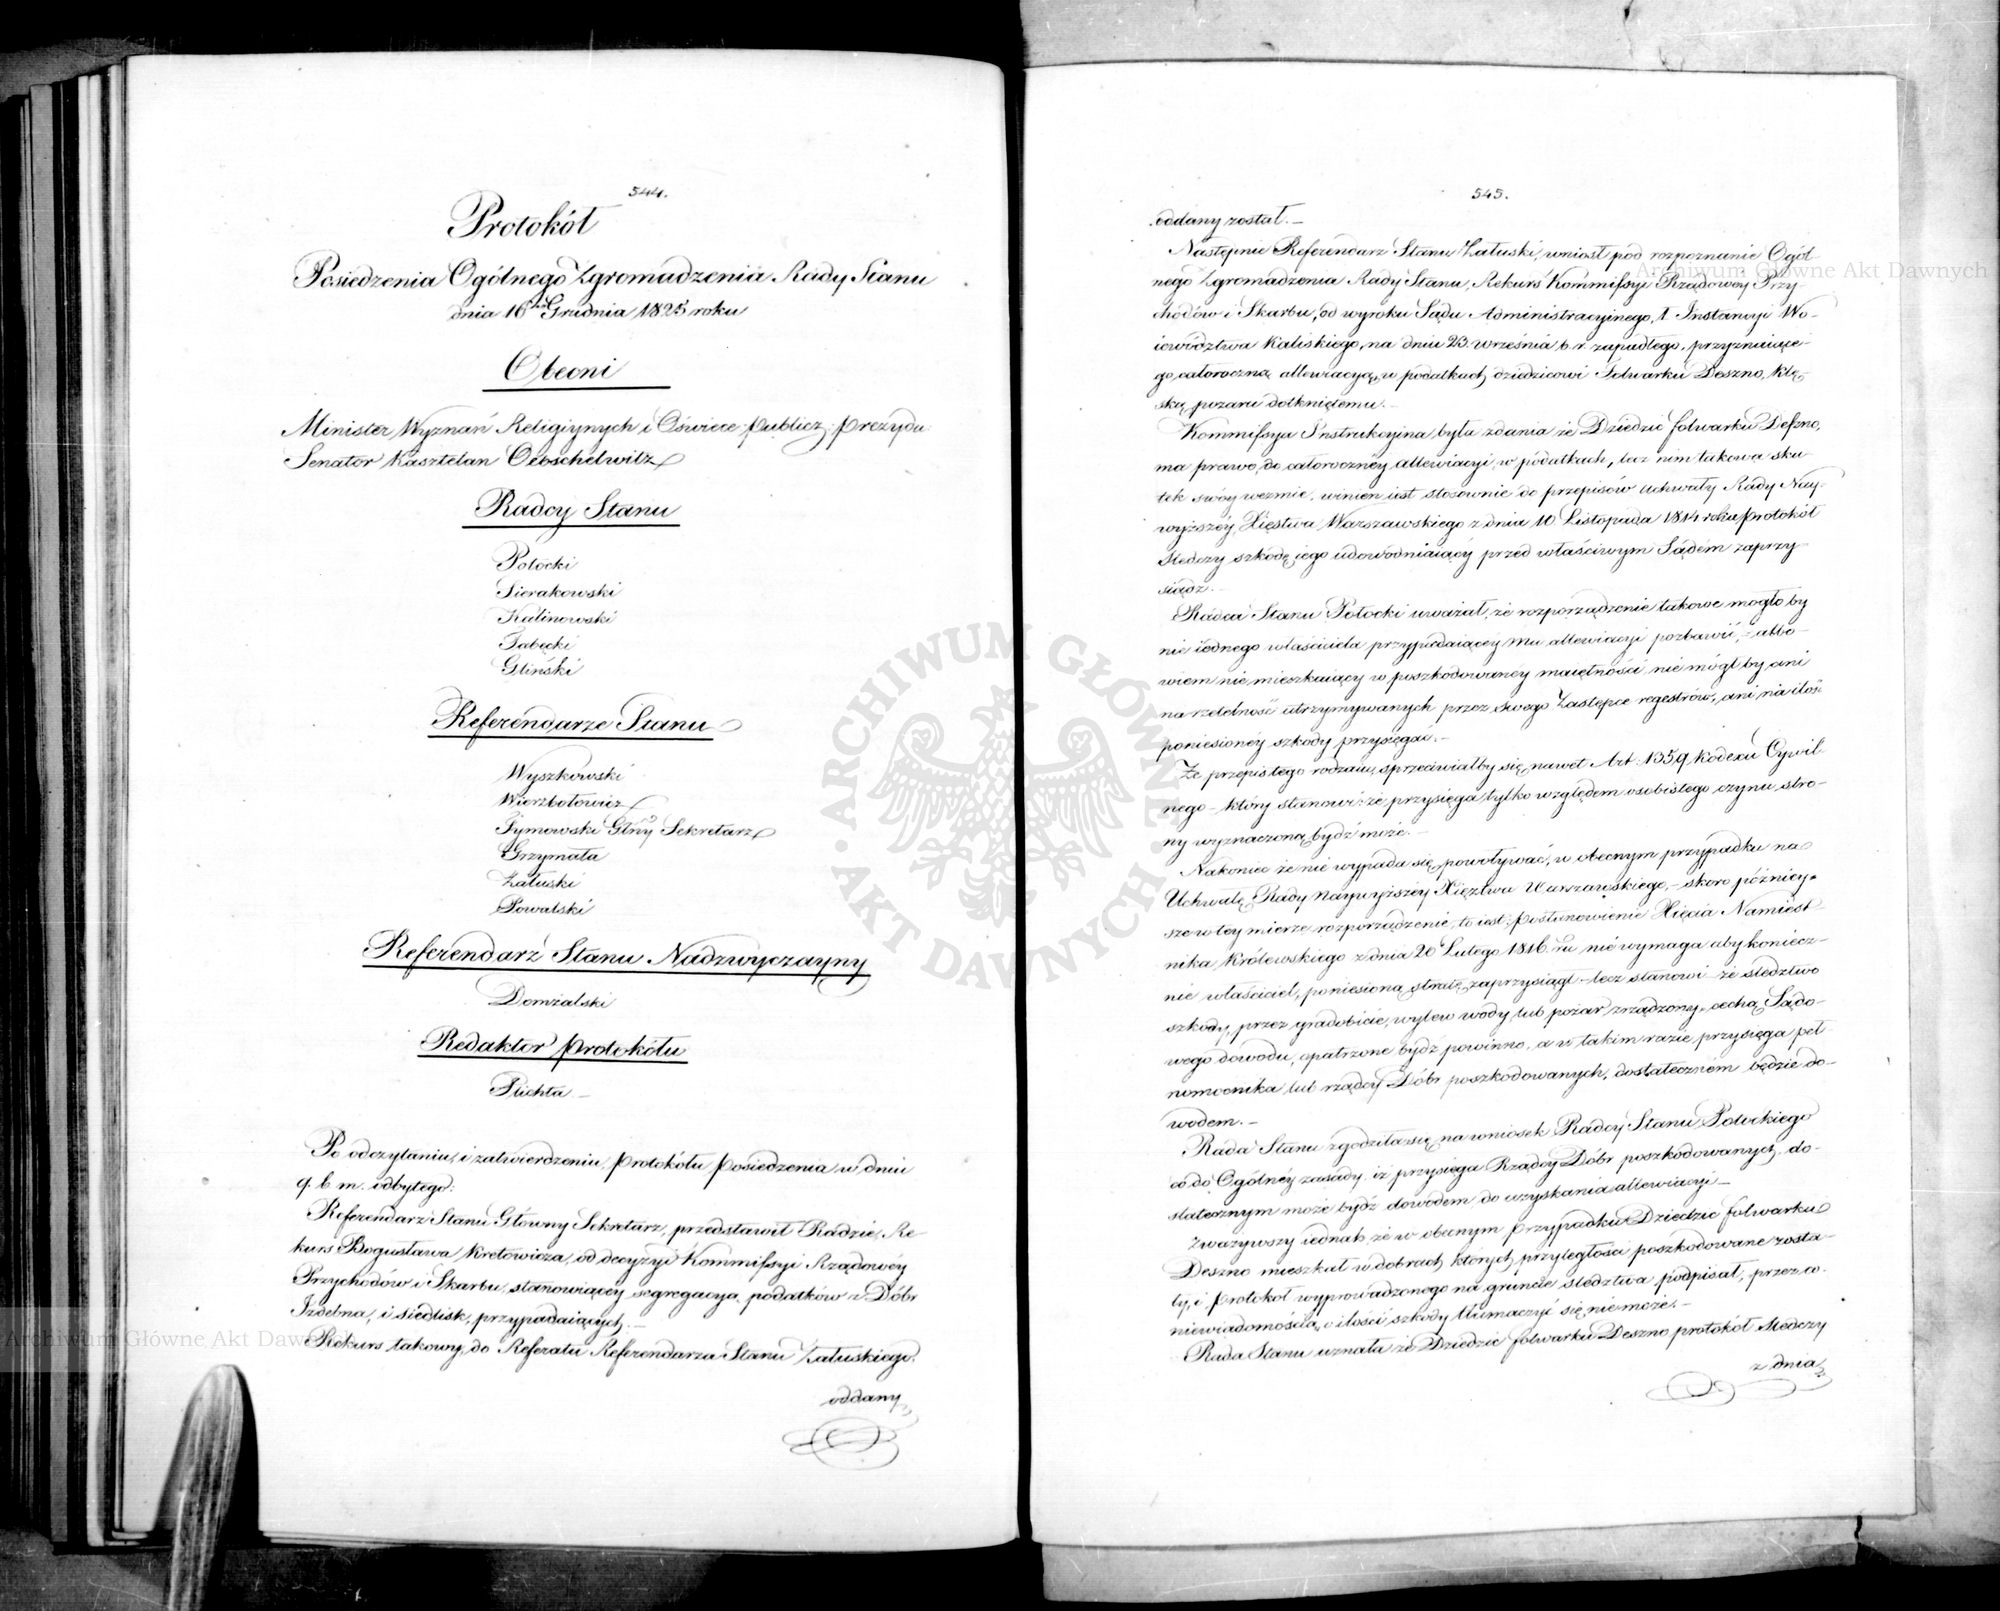 544.
Protokół
Posiedzenia Ogólnego Zgromadzenia Rady Stanu
dnia 16go Grudnia 1825 roku
Obecni
Minister Wyznań Religiynych i Oświece: publicz: prezydu:
Senator Kasztelan Oebschelwitz
Radcy Stanu
Potocki
Sierakowski
Kalinowski
Tabęcki
Gliński
Referendarze Stanu
Wyszkowski
Wierzbołowicz
Tymowski Głny Sekretarz
Grzymała
Załuski
Powalski
Referendarz Stanu Nadzwyczayny
Domżalski
Redaktor protokółu
Plichta
Po odczytaniu, i zatwierdzeniu, protokółu posiedzenia w dniu
9. b. m. odbytego:
Referendarz Stanu Główny Sekretarz, przedstawił Radzie, Re-
kurs Bogusława Kretowicza, od decyzyi Kommissyi Rządowéy
Przychodów i Skarbu, stanowiącey segregacyą podatków z Dóbr
Izdebna, i siedlisk, przypadaiących. —
Rekurs takowy, do Referatu Referendarza Stanu Załuskiego,
oddany
545.
oddany został. —
Następnie Referendarz Stanu Załuski, wniósł pod rozpoznanie Ogól
nego Zgromadzenia Rady Stanu, Rekurs Kommissyi Rządowey Przy-
chodów i Skarbu, od wyroku Sądu Administracyjnego, 1. Instancyi Wo-
iewództwa Kaliskiego, na dniu 23. września, b. r. zapadłego, przyznaiące-
go, całoroczną allewiacyą, w podatkach dziedzicowi Folwarku Deszno, klę-
ską pożaru dotkniętemu. —
Kommissya Instrukcyina była zdania że Dziedzic folwarku Deszno,
ma prawo, do całoroczney allewiacyi, w podatkach, lecz nim takowa sku
tek swóy weźmie, winien iest stosownie do przepisów Uchwały Rady Nay-
wyższéy, Xięstwa Warszawskiego z dnia 10 Listopada 1814 roku protokół
śledczy szkodę iego udowodniaiący przed właściwym Sądem zaprzy-
siądz. —
Radca Stanu Potocki uważał, że rozporządzenie takowe mogło by
nie iednego właściciela przypadaiącéy mu allewiacyi pozbawić, albo-
wiem nie mieszkaiący w poszkodowaney maiętności nie mógł by ani
na rzetelność utrzymywanych przez swego Zastępce regestrów, ani na ilość
poniesioney szkody przysięgać. —
Że przepis tego rodzaiu, sprzeciwiałby się nawet Art: 1359 Kodexu Cywil
nego — który stanowi: że przysięga, tylko względem osobistego czynu stro-
ny wyznaczoną bydź może. —
Nakoniec że nie wypada się, powoływać, w obecnym przypadku na
Uchwałę Rady Naywyższéy Xięztwa Warszawskiego, — skoro późniey-
sze w tey mierze rozporządzenie, to iest: postanowienie Xięcia Namiest
nika Królewskiego z dnia 20 Lutego 1816. ru nie wymaga aby koniecz-
nie właściciel, poniesioną stratę zaprzysiągł — lecz stanowi — że śledztwo
szkody, przez gradobicie, wylew wody, lub pożar zrządzony, cechą Sądo-
wego dowodu, opatrzone bydź powinno, a w takim razie przysięga peł
nomocnika lub rządcy Dóbr poszkodowanych, dostatecznem będzie do-
wodem. —
Rada Stanu zgodziła się, na wniosek Radcy Stanu Potockiego
co do Ogólnéy zasady, iż przysięga Rządcy Dóbr poszkodowanych, do-
statecznym może bydź dowodem, do uzyskania allewiacyi —
Zważywszy iednak, że w obecnym przypadku Dziedzic folwarku
Deszno mieszkał w dobrach których przyległości poszkodowane zosta-
ły, i protokół wyprowadzonego na gruncie śledztwa podpisał, przez co
niewiadomością, o ilości szkody tłumaczyć się nie może. —
Rada Stanu uznała że Dziedzic folwarku Deszno protokół śledczy
z dnia
Archiwum Główne Akt Dawnych
Archiwum Główne Akt Dawnych
ARCHIWUM GŁÓWNE AKT DAWNYCH